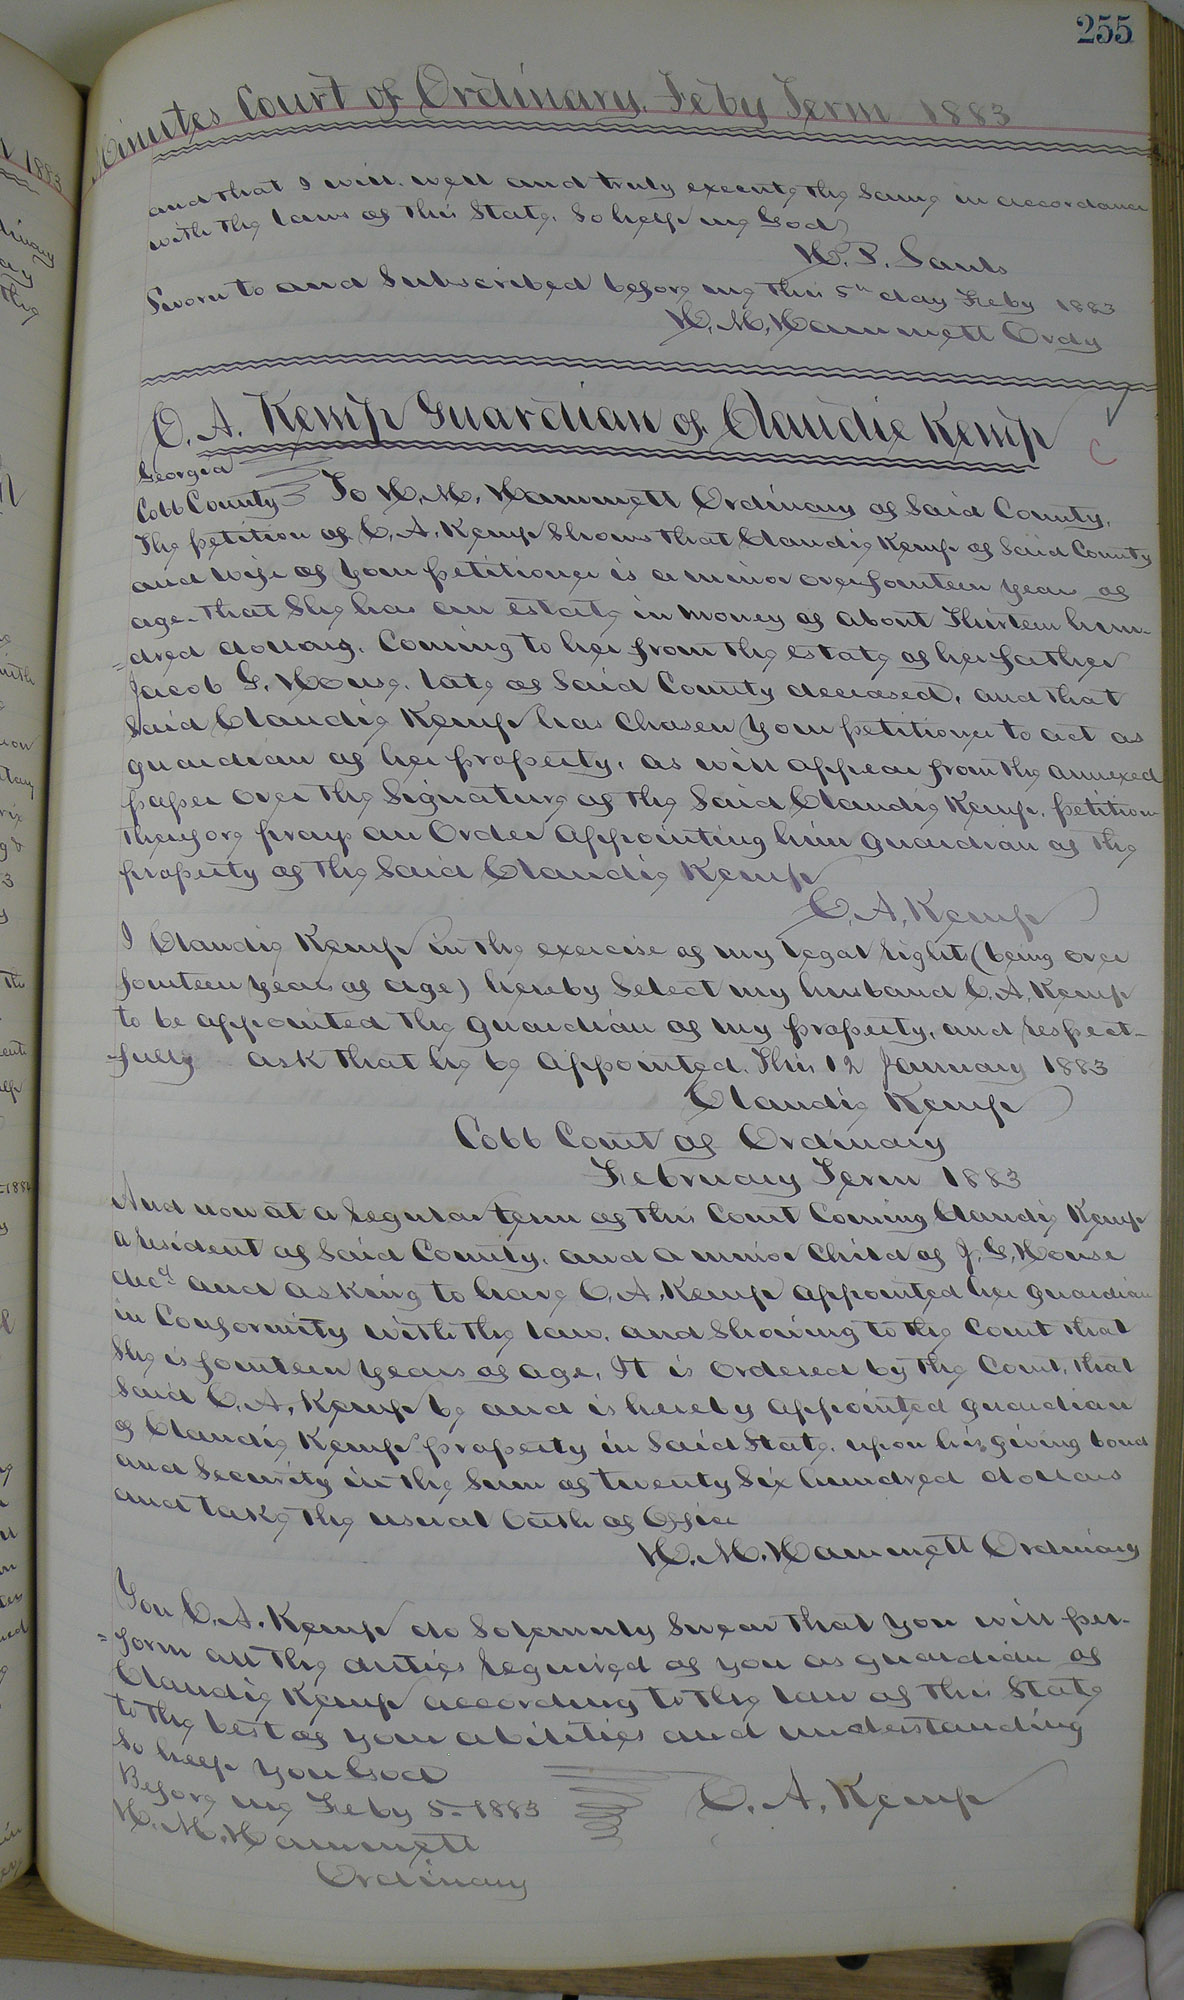 255
Minutes Court of Ordinary. Feby Term 1883
and that I will well and truly execute the same in accordance
with the laws of this State. So help me God
Sworn to and Subscribed before me this 5th day Feby 1883
H. M. Hammett Ordy
C. A. Kemp Guardian of Claudie Kemp
C
Georgia
Cobb County To H. M. Hammett Ordinary of Said County.
The petition of C. A. Kemp Shows that Claudie Kemp of Said County
and wife of your petitioner is a minor over fourteen years of
age. that She has an estate in money of about Thirteen hun-
=dred dollars. Coming to her from the estate of her father
Jacob G. House. late of Said County deceased, and that
Said Claudie Kemp has Chosen your petitioner to act as
guardian of her property, as will appear from the annexed
paper over the Signature of the Said Claudie Kemp. petition
therefore prays an Order appointing him guardian of the
property of the Said Claudie Kemp
C. A. Kemp
I Claudie Kemp in the exercise of my legal rights (being over
fourteen years of age) hereby Select my husband C. A. Kemp
to be appointed the guardian of my property, and respect-
fully ask that he be appointed. This 12 January 1883
Claudie Kemp
Cobb Court of Ordinary
February Term 1883
And now at a regular term of this Court Coming Claudie Kemp
a resident of Said County, and a minor Child of J. G. House
decd and asking to have C. A. Kemp appointed her guardian
in Conformity with the law, and Showing to the Court that
She is fourteen years of age, It is Ordered by the Court, that
Said C. A. Kemp be and is hereby appointed guardian
of Claudie Kemp property in Said State, upon his giving bond
and Security in the Sum of twenty Six hundred dollars
and take the usual Oath of Office
H. M. Hammett Ordinary
You C. A. Kemp do Solemnly Swear that you will per-
=form all the duties required of you as guardian of
Claudie Kemp according to the law of this State
to the best of your abilities and understanding
So help you God
Before me Feby 5-1883
C. A. Kemp
H. M. Hammett
Ordinary